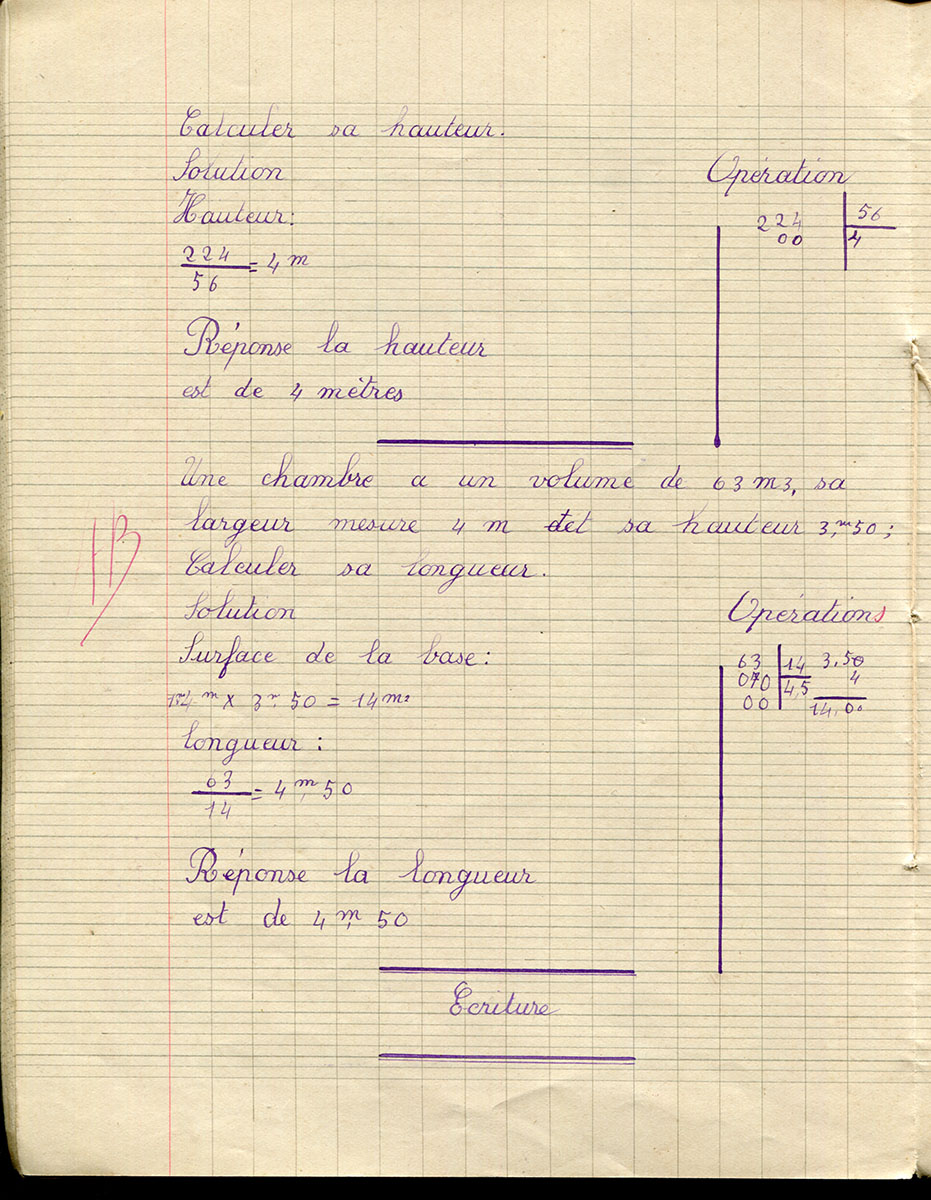 Calculer sa hauteur.
Solution
Opération
Hauteur:
224 | 56
00 | 4
224
— = 4 m
56
Réponse la hauteur
est de 4 mètres
Une chambre a un volume de 63 m3, sa
largeur mesure 4 m et sa hauteur 3,m50;
Calculer sa longueur.
TB
Solution
Opérations
Surface de la base:
63 | 14
070 | 4,5
00
3,50
4
14,00
4 m x 3m,50 = 14 m2
longueur :
63
— = 4 m, 50
14
Réponse la longueur
est de 4 m, 50
Ecriture